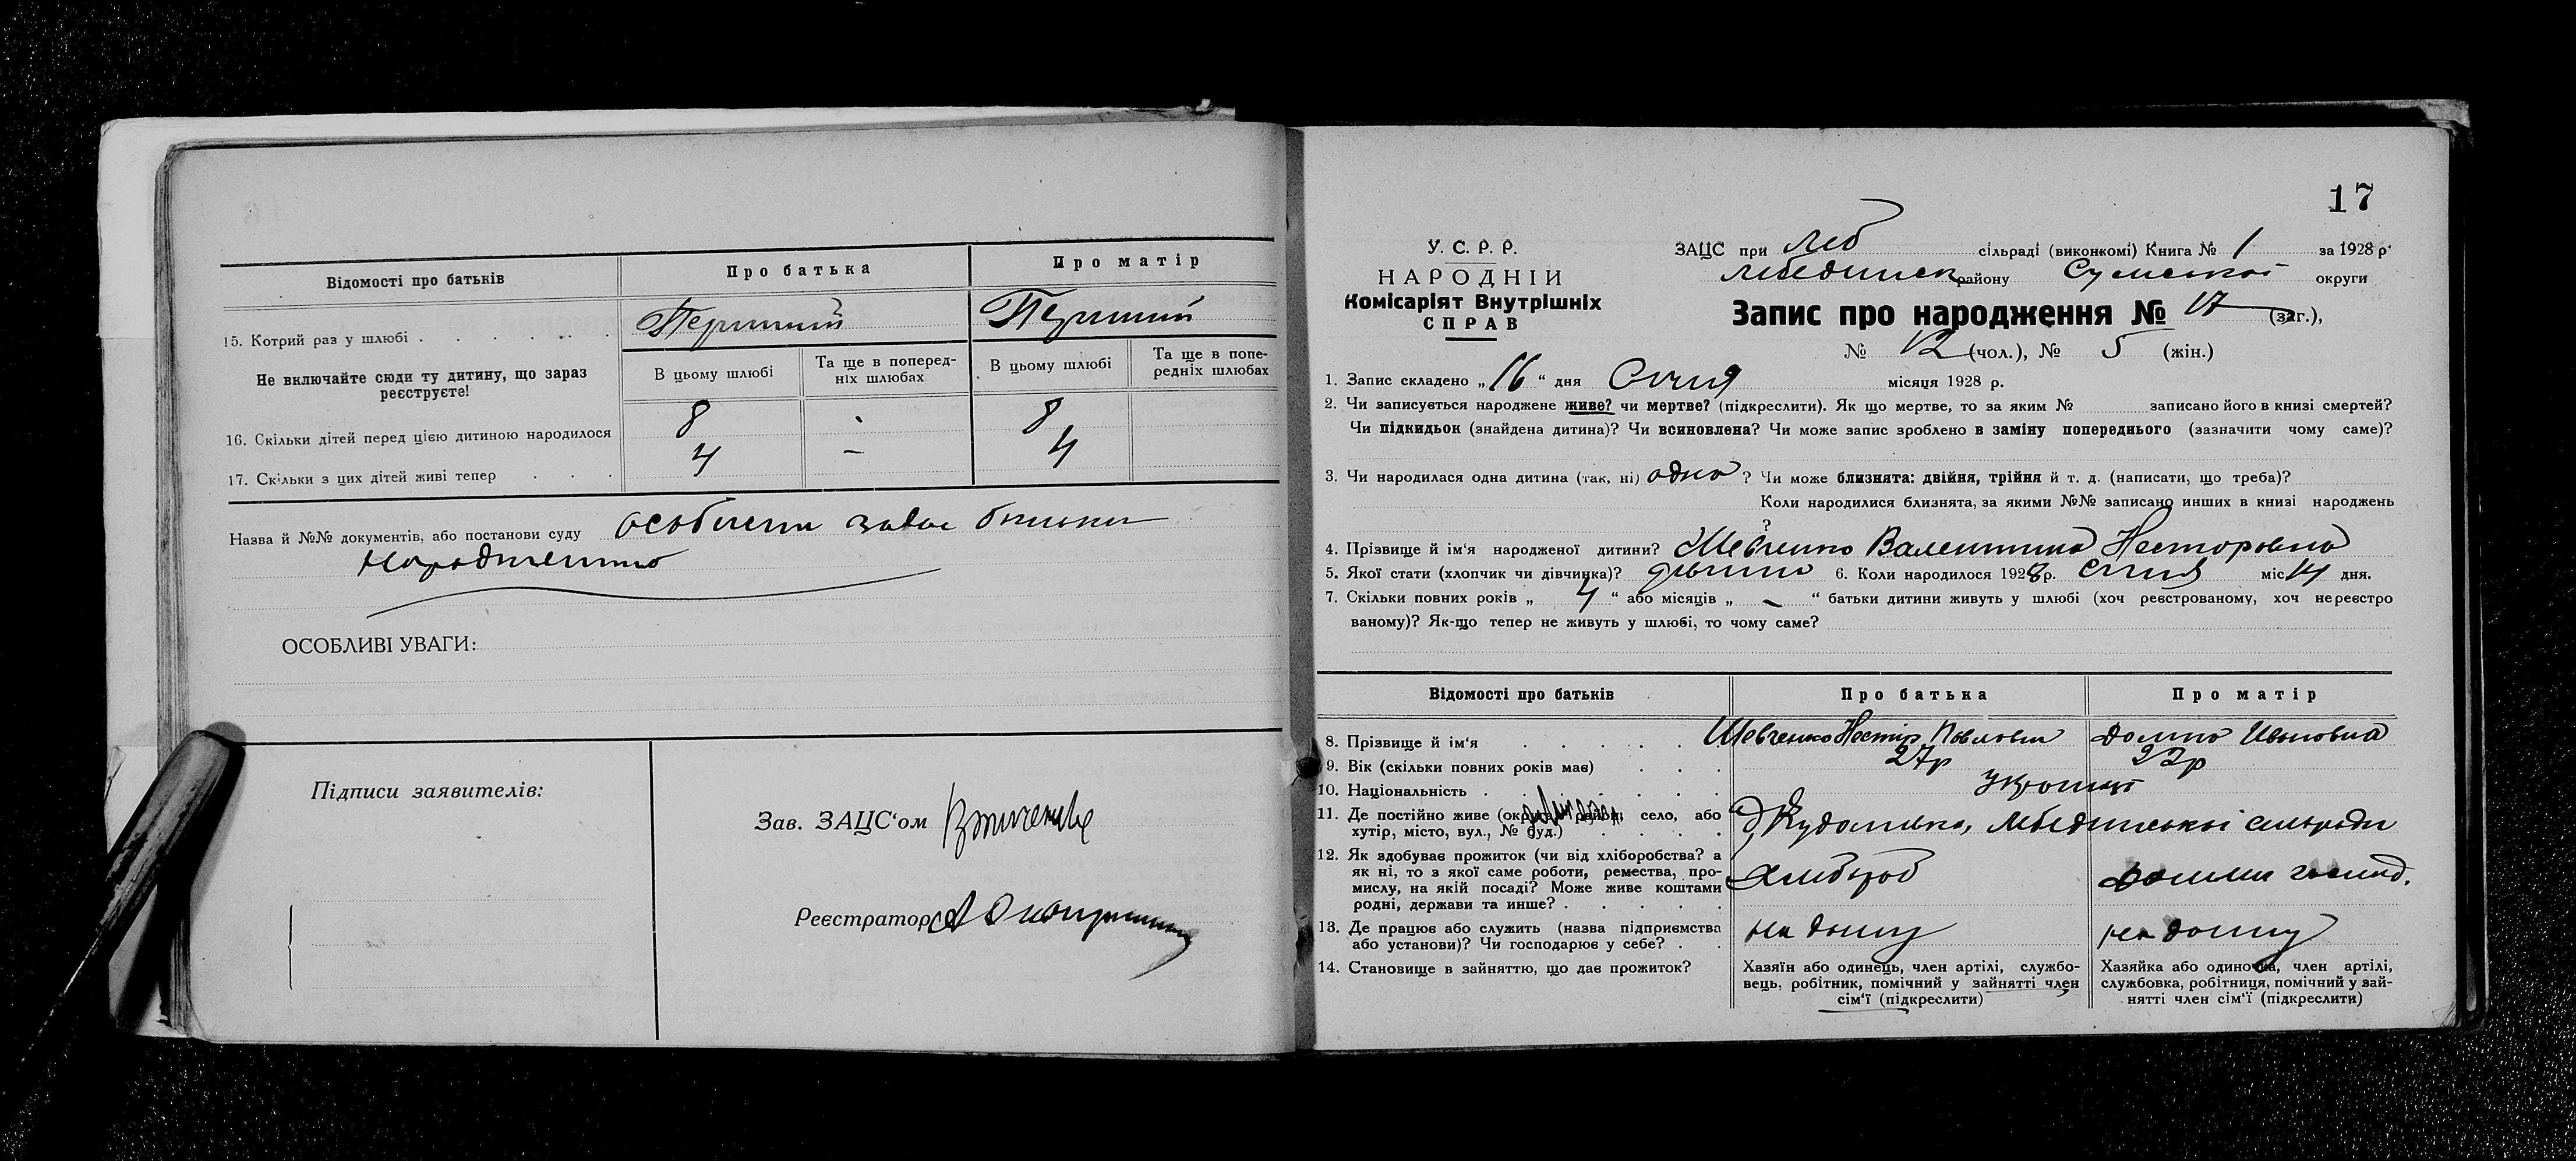 Відомості про батьків
Про батька
Про матір
15. Котрий раз у шлюбі
Перший
Перший
Не включайте сюди ту дитину, що зараз
реєструєте!
В цьому шлюбі
Та ще в поперед-
ніх шлюбах
В цьому шлюбі
Та ще в попе-
редніх шлюбах
16. Скільки дітей перед цією дитиною народилося
8
8
17. Скільки з цих дітей живі тепер
4
–
4
Назва й №№ документів, або постанови суду
ОСОБЛИВІ УВАГИ:
Підписи заявителів:
Зав. ЗАЦС'ом
Реєстратор
17
У. С. Р. Р.
НАРОДНІЙ
Комісаріят Внутрішніх
СПРАВ
ЗАЦС при Леб сільраді (виконкомі) Книга № 1 за 1928 р.
Лебединск району Сумської округи
Запис про народження № 17 (заг.),
№ 12 (чол.), № 5 (жін.)
1. Запис складено „ 16 “ дня Січня місяця 1928 р.
2. Чи записується народжене живе? чи мертве? (підкреслити). Як що мертве, то за яким № записано його в книзі смертей?
Чи підкидьок (знайдена дитина)? Чи всиновлена? Чи може запис зроблено в заміну попереднього (зазначити чому саме)?
3. Чи народилася одна дитина (так, ні) одна ? Чи може близнята: двійня, трійня й т. д. (написати, що треба)?
Коли народилися близнята, за якими №№ записано инших в книзі народжень
?
4. Прізвище й ім'я народженої дитини? Шевченко Валентина Несторовна
5. Якої стати (хлопчик чи дівчинка)? дівчина 6. Коли народилося 1928 р. січня міс 14 дня.
7. Скільки повних років „ 4 “ або місяців „ – “ батьки дитини живуть у шлюбі (хоч реєстрованому, хоч нереєстро
ваному)? Як-що тепер не живуть у шлюбі, то чому саме?
Відомості про батьків
Про батька
Про матір
8. Прізвище й ім'я
Шевченко Нестір Павлович
Домна Ивановна
9. Вік (скільки повних років має)
27р
23р
10. Національність
11. Де постійно живе (округа, район, село, або
хутір, місто, вул., № буд.)
Лебединської сільради
12. Як здобуває прожиток (чи від хліборобства? а
як ні, то з якої саме роботи, ремества, про-
мислу, на якій посаді? Може живе коштами
родні, держави та инше?
Хлібороб
домаш господ.
13. Де працює або служить (назва підприємства
або установи)? Чи господарює у себе?
на дому
на дому
14. Становище в зайняттю, що дає прожиток?
Хазяїн або одинець, член артілі, службо-
вець, робітник, помічний у зайнятті член
сім'ї (підкреслити)
Хазяйка або одиночка, член артілі,
службовка, робітниця, помічний у зай-
нятті член сім'ї (підкреслити)